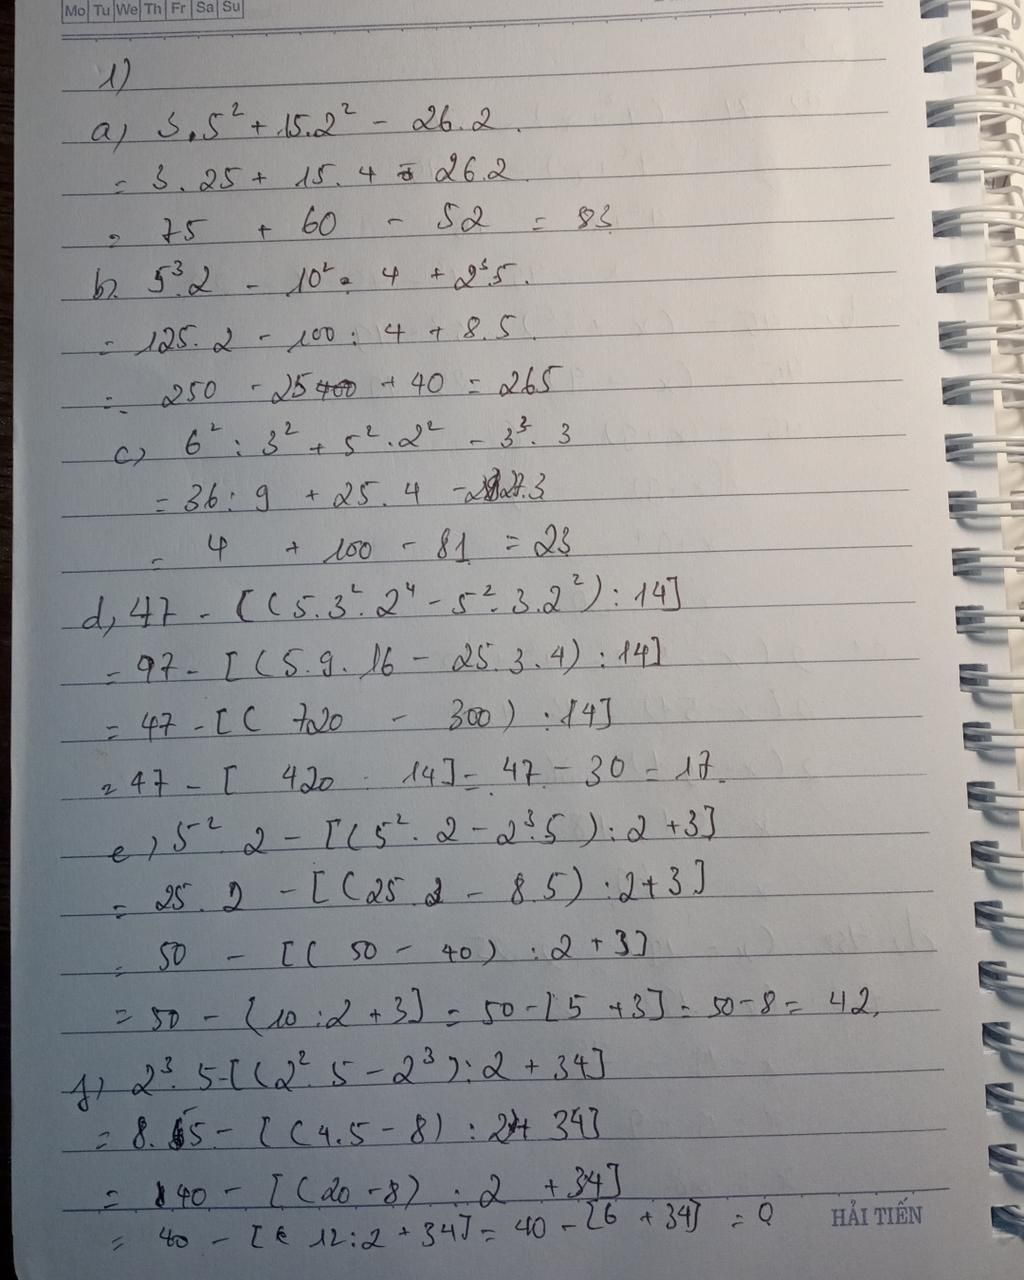 Mo Tu We Th Fr Sa Su
1)
a) 3.5² + 15.2² - 26.2.
= 3.25 + 15.4 - 26.2
= 75 + 60 - 52 = 83
b. 5³.2 - 10² : 4 + 2³.5.
= 125.2 - 100 : 4 + 8.5.
= 250 - 25 + 40 = 265
c) 6² : 3² + 5².2² - 3³.3
= 36 : 9 + 25.4 - 27.3
= 4 + 100 - 81 = 23
d, 47 - [(5.3².2⁴ - 5².3.2²) : 14]
= 97 - [(5.9.16 - 25.3.4) : 14]
= 47 - [( 720 - 300) : 14]
= 47 - [ 420 : 14] = 47 - 30 = 17.
e) 5².2 - [(5².2 - 2³.5) : 2 + 3]
= 25.2 - [(25.2 - 8.5) : 2 + 3]
= 50 - [( 50 - 40) : 2 + 3]
= 50 - [10 : 2 + 3] = 50 - [5 + 3] = 50 - 8 = 42.
f) 2³.5 - [(2².5 - 2³) : 2 + 34]
= 8.5 - [(4.5 - 8) : 2 + 34]
= 40 - [(20 - 8) : 2 + 34]
= 40 - [ 12 : 2 + 34] = 40 - [6 + 34] = 0
HẢI TIẾN